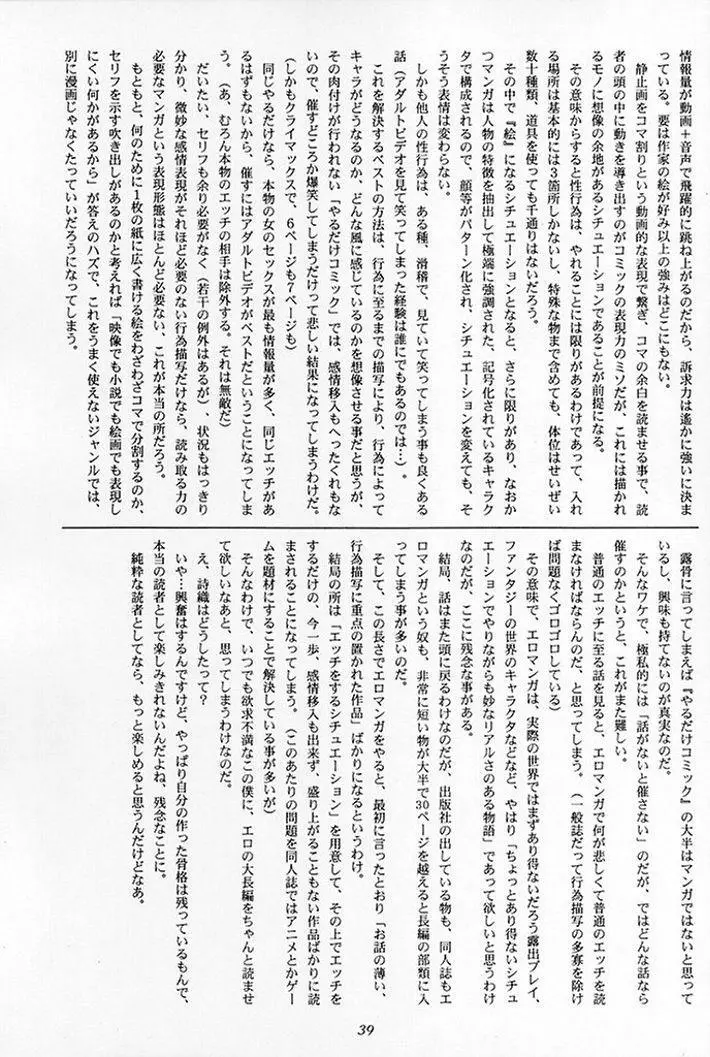 情報量が動画＋音声で飛躍的に跳ね上がるのだから、訴求力は遥かに強いに決ま
っている。要は作家の絵が好み以上の強みはどこにもない。
静止画をコマ割りという動画的な表現で繋ぎ、コマの余白を読ませる事で、読
者の頭の中に動きを導き出すのがコミックの表現力のミソだが、これには描かれ
るモノに想像の余地があるシチュエーションであることが前提になる。
その意味からすると性行為は、やれることには限りがあるわけであって、入れ
る場所は基本的には３箇所しかないし、特殊な物まで含めても、体位はせいぜい
数十種類、道具を使っても千通りはないだろう。
その中で『絵』になるシチュエーションとなると、さらに限りがあり、なおか
つマンガは人物の特徴を抽出して極端に強調された、記号化されているキャラク
タで構成されるので、顔等がパターン化され、シチュエーションを変えても、そ
うそう表情は変わらない。
しかも他人の性行為は、ある種、滑稽で、見ていて笑ってしまう事も良くある
話（アダルトビデオを見て笑ってしまった経験は誰にでもあるのでは…）。
これを解決するベストの方法は、行為に至るまでの描写により、行為によって
キャラがどうなるのか、どんな風に感じているのかを想像させる事だと思うが、
その肉付けが行われない「やるだけコミック」では、感情移入もへったくれもな
いので、催すどころか爆笑してしまうだけって悲しい結果になってしまうわけだ。
（しかもクライマックスで、６ページも７ページも）
同じやるだけなら、本物の女のセックスが最も情報量が多く、同じエッチがあ
るはずもないから、催すにはアダルトビデオがベストだということになってしま
う。（あ、むろん本物のエッチの相手は除外する。それは無敵だ）
だいたい、セリフも余り必要がなく（若干の例外はあるが）、状況もはっきり
分かり、微妙な感情表現がそれほど必要のない行為描写だけなら、読み取る力の
必要なマンガという表現形態はほとんど必要ない、これが本当の所だろう。
もともと、何のために１枚の紙に広く書ける絵をわざわざコマで分割するのか、
セリフを示す吹き出しがあるのかと考えれば「映像でも小説でも絵画でも表現し
にくい何かがあるから」が答えのハズで、これをうまく使えないジャンルでは、
別に漫画じゃなくたっていいだろうになってしまう。
露骨に言ってしまえば『やるだけコミック』の大半はマンガではないと思って
いるし、興味も持てないのが真実なのだ。
そんなワケで、極私的には「話がないと催さない」のだが、ではどんな話なら
催すのかというと、これがまた難しい。
普通のエッチに至る話を見ると、エロマンガで何が悲しくて普通のエッチを読
まなければならんのだ、と思ってしまう。（一般誌だって行為描写の多寡を除け
ば問題なくゴロゴロしている）
その意味で、エロマンガは、実際の世界ではまずあり得ないだろう露出プレイ、
ファンタジーの世界のキャラクタなどなど、やはり「ちょっとあり得ないシチュ
エーションでやりながらも妙なリアルさのある物語」であって欲しいと思うわけ
なのだが、ここに残念な事がある。
結局、話はまた頭に戻るわけなのだが、出版社の出している物も、同人誌もエ
ロマンガという奴も、非常に短い物が大半で30ページを越えると長編の部類に入
ってしまう事が多いのだ。
そして、この長さでエロマンガをやると、最初に言ったとおり「お話の薄い、
行為描写に重点の置かれた作品」ばかりになるというわけ。
結局の所は「エッチをするシチュエーション」を用意して、その上でエッチを
するだけの、今一歩、感情移入も出来ず、盛り上がることもない作品ばかりに読
まされることになってしまう。（このあたりの問題を同人誌ではアニメとかゲー
ムを題材にすることで解決している事が多いが）
そんなわけで、いつでも欲求不満なこの僕に、エロの大長編をちゃんと読ませ
て欲しいなあと、思ってしまうわけなのだ。
え、詩織はどうしたって？
いや…興奮はするんですけど、やっぱり自分の作った骨格は残っているもんで、
本当の読者として楽しみきれないんだよね、残念なことに。
純粋な読者としてなら、もっと楽しめると思うんだけどなあ。
39